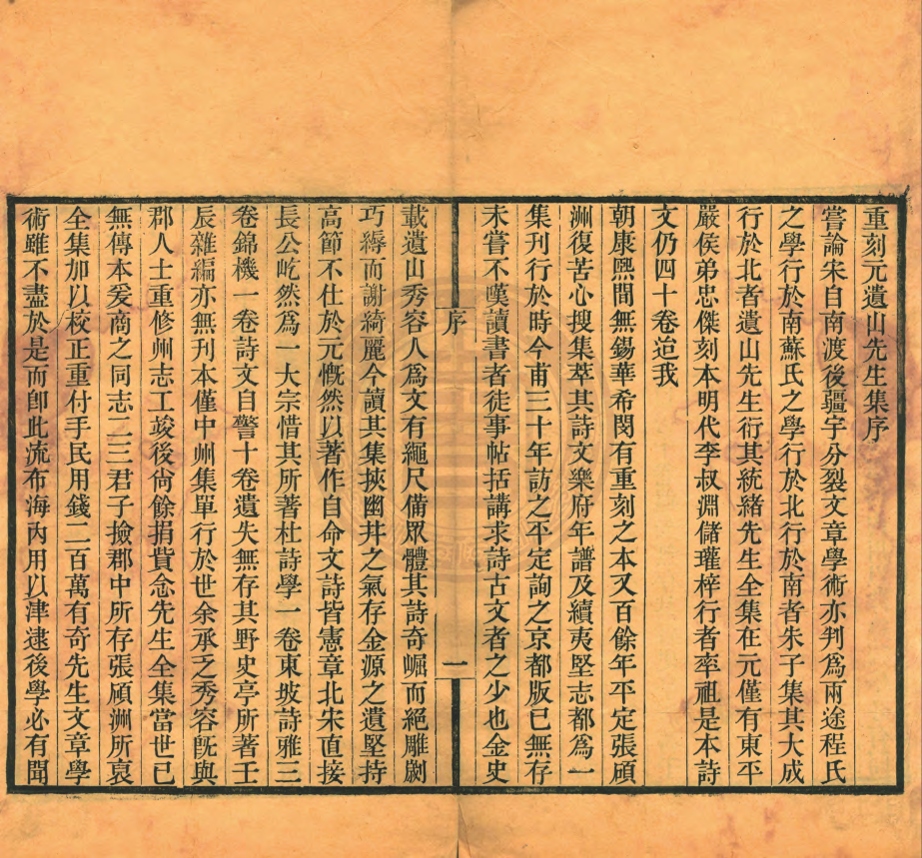 重刻元遺山先生集序
嘗論宋自南渡後疆宇分裂文章學術亦判爲兩途程氏
之學行於南蘇氏之學行於北行於南者朱子集其大成
行於北者遺山先生衍其統緒先生全集在元僅有東平
嚴侯弟忠傑刻本明代李叔淵儲瓘梓行者率祖是本詩
文仍四十卷迨我
朝康熙間無錫華希閔有重刻之本又百餘年平定張碩
洲復苦心搜集萃其詩文樂府年譜及續夷堅志都爲一
集刊行於時今甫三十年訪之平定詢之京都版已無存
未嘗不嘆讀書者徒事帖括講求詩古文者之少也金史
序
一
載遺山秀容人爲文有繩尺備眾體其詩奇崛而絕雕劌
巧縟而謝綺麗今讀其集挾幽井之氣存金源之遺堅持
高節不仕於元慨然以著作自命文詩皆憲章北宋直接
長公屹然爲一大宗惜其所著杜詩學一卷東坡詩雅三
卷錦機一卷詩文自警十卷遺失無存其野史亭所著壬
辰雜編亦無刊本僅中州集單行於世余承乏秀容旣與
郡人士重修州志工竣後尙餘捐貲念先生全集當世已
無傳本爰商之同志二三君子撿郡中所存張碩洲所裒
全集加以校正重付手民用錢二百萬有奇先生文章學
術雖不盡於是而卽此流布海內用以津逮後學必有聞